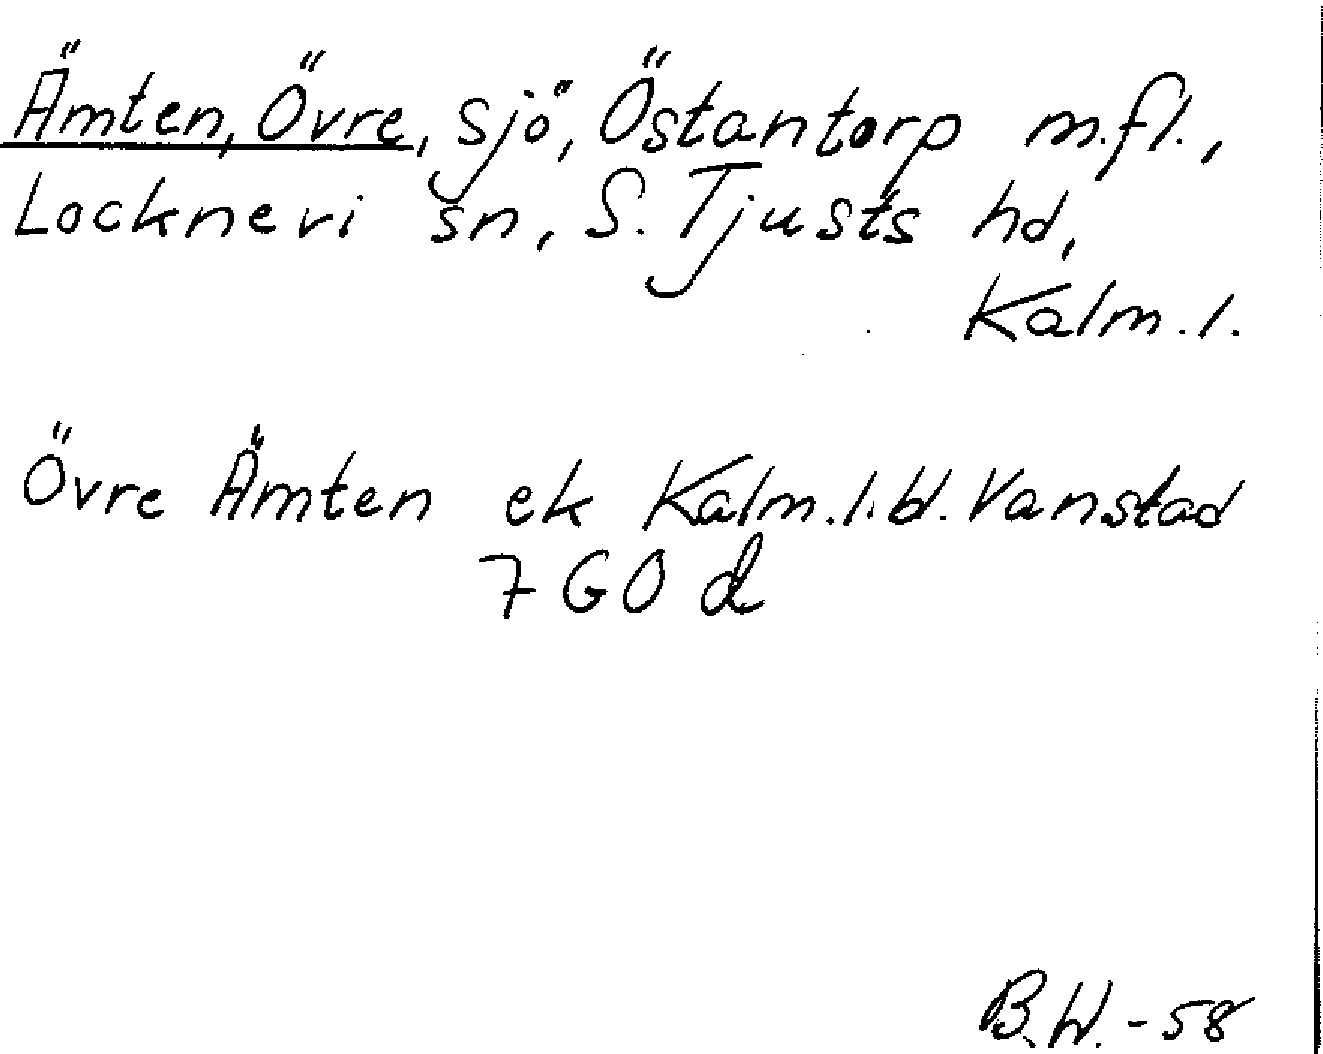 Ämten, Övre, sjö, Östantorp m.fl.,
Lockneri sn, S. Tjusts hd,
Kalm. l.
Övre Ämten ek Kalm. l. bl. Vanstad
7 G O d
B.W. -58